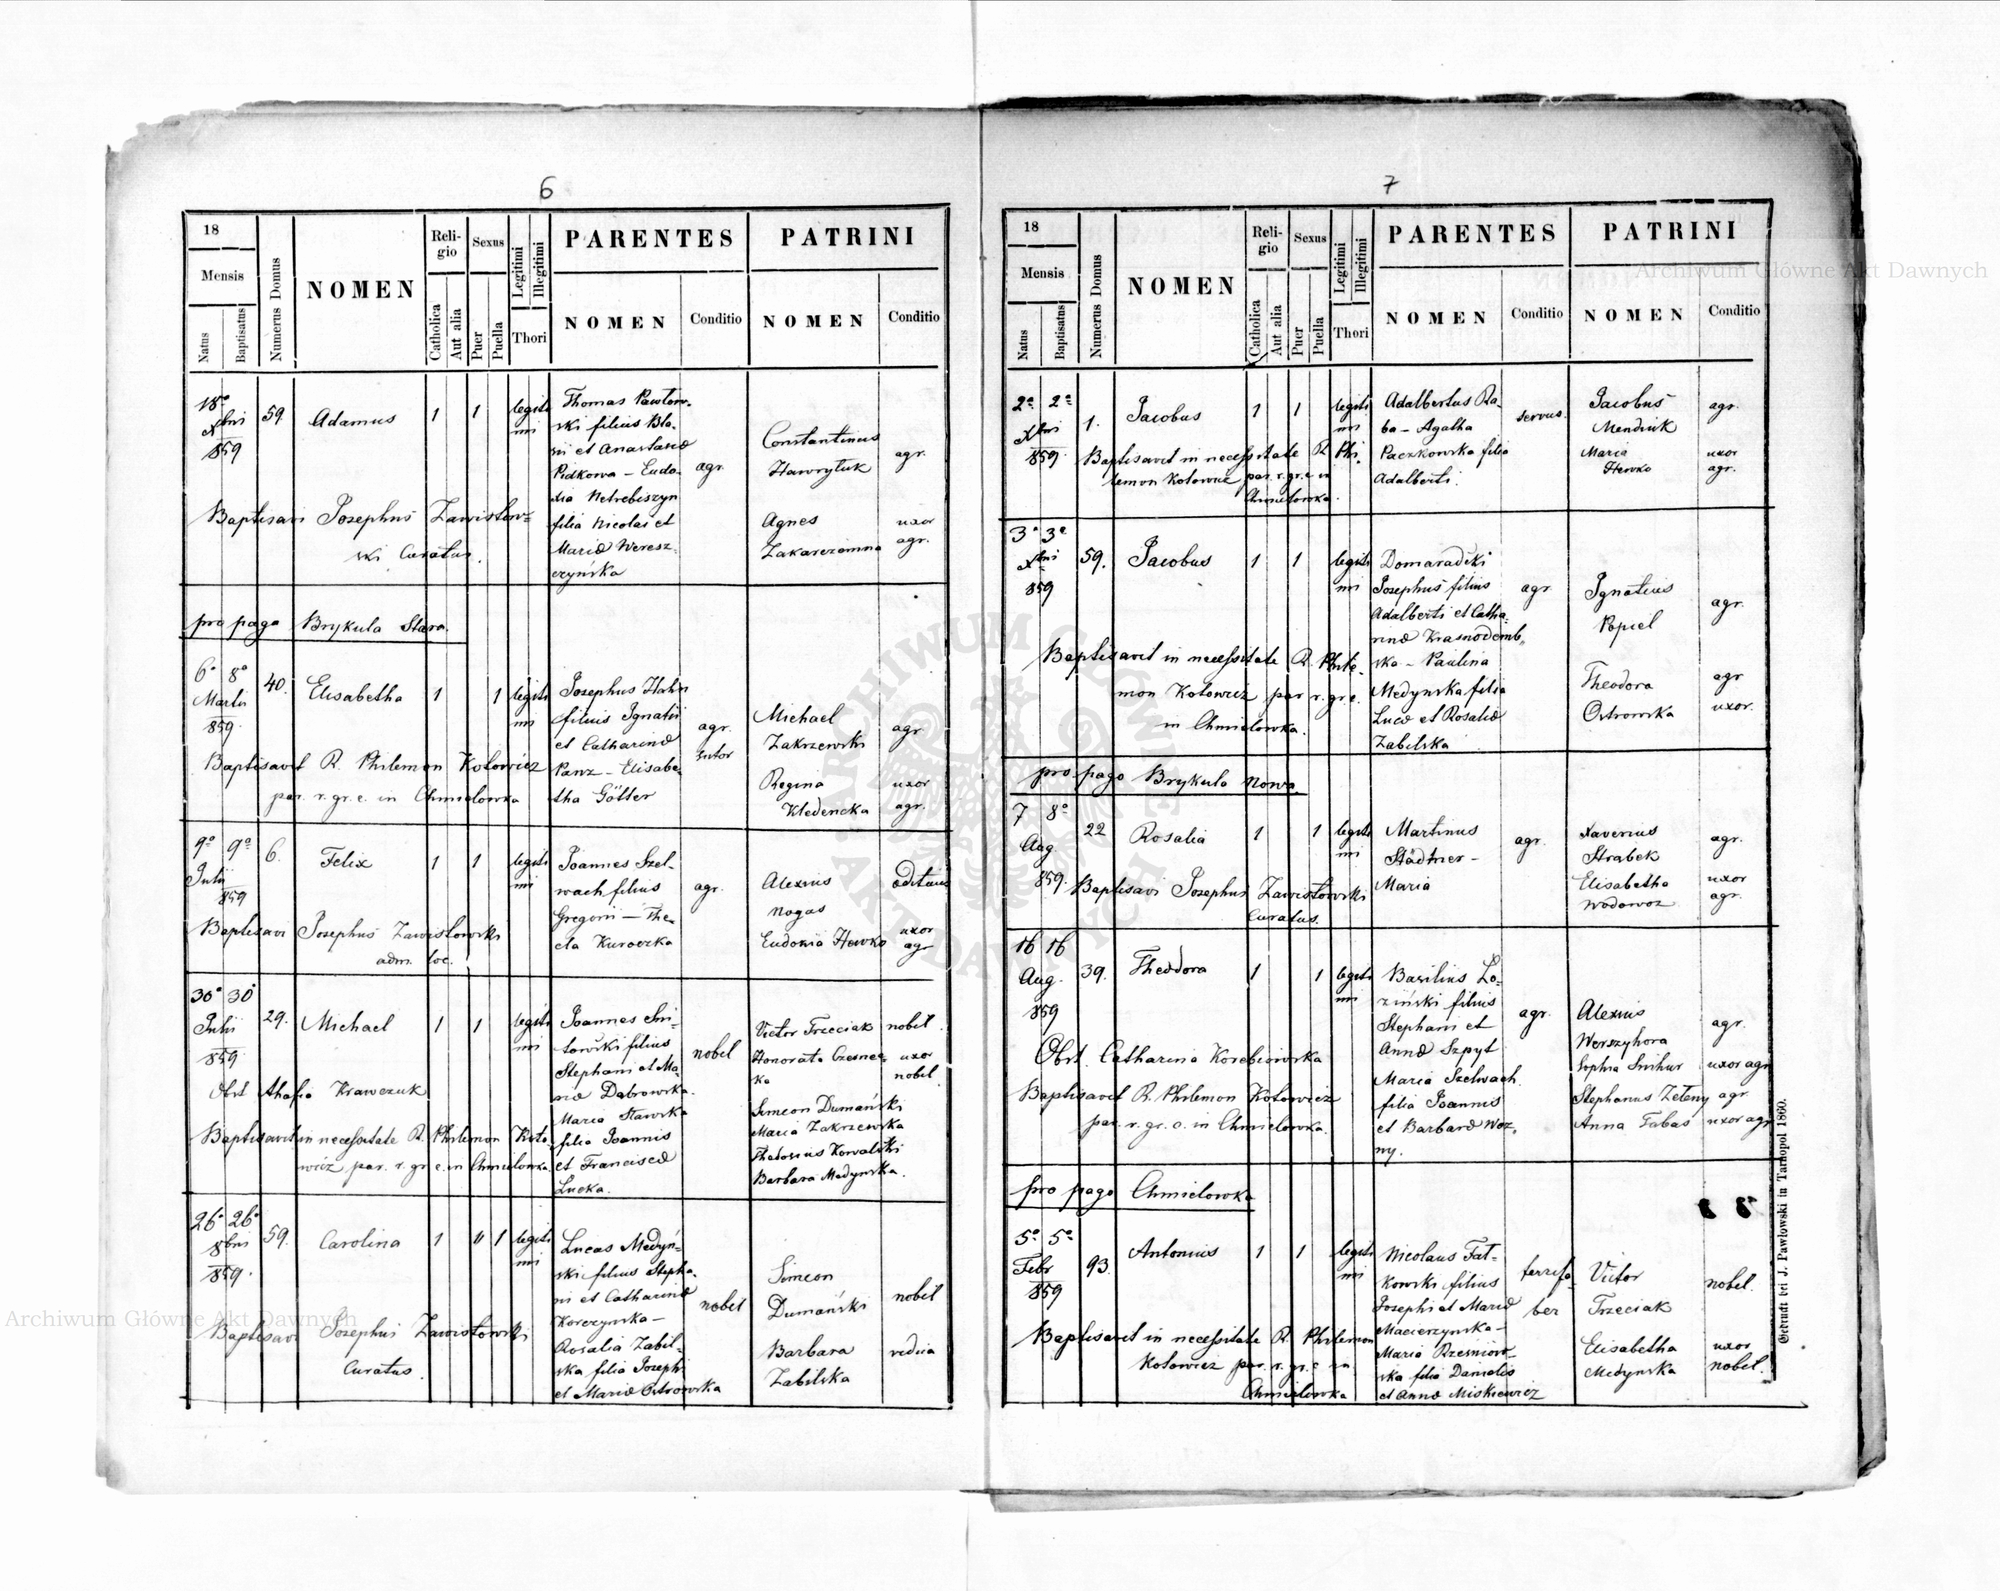 6
18
Mensis
Natus
Baptisatus
Numerus Domus
NOMEN
Religio
Catholica
Aut alia
Sexus
Puer
Puella
Legitimi
Illegitimi
Thori
PARENTES
NOMEN
Conditio
PATRINI
NOMEN
Conditio
18ª
Xbri
859
59.
Adamus
1
1
legiti
mi
Thomas Pawłow-
ski filius Bla-
sii et Anastasiæ
Pidkowa – Eudo-
xia Netrebiszyn
filia Nicolai et
Mariæ Weresz-
czyńska
agr.
Constantinus
Hawryluk
agr.
Agnes
uxor
agr.
Baptisavi Josephus Zawistow-
ski Curatus.
pro pago Brykula Stara.
6ª 8ª
Martii
859.
40.
Elisabetha
1
1
legiti
mi
Josephus Hahn
filius Ignatii
et Catharinæ
Panz – Elisabe-
tha Götter
agr.
sutor
Michael
Zakrzewski
agr.
Regina
Kledencka
uxor
agr.
Baptisavit R. Philemon Kotowicz
par. r. gr. c. in Chmielowka
9ª 9ª
Julii
859
6.
Felix
1
1
legiti
mi
Joannes Szel-
wach filius
Gregorii – The-
cla Kuroczka
agr.
Alexius
Nogas
Eudoxia Hewko
uxor
agr
Baptisavi Josephus Zawistowski
adm. loc.
30ª 30
Julii
859
29.
Michael
1
1
legiti
mi
Joannes Smi-
towski filius
Stephani et Ma-
riæ Dąbrowska.
Maria Stawska
filia Joannis
et Franciscæ
Lucka.
nobil
Victor Trzeciak
nobil.
Honorata Czesnec-
ka
uxor
nobil.
Simeon Dumański
Maria Zakrzewska
Theodosius Kowalski
Barbara Medynska.
Obst. Ahafia Krawczuk
Baptisavit in necessitate R. Philemon Koto-
wicz par. r. gr c. in Chmielowka.
26ª 26ª
8bri
859.
59.
Carolina
1
1
legiti
mi
Lucas Medyń-
ski filius Stepha-
ni et Catharinæ
Korczynska –
Rosalia Zabil-
ska filia Josephi
et Mariæ Ostrowska
nobil
Simeon
Dumański
nobil
Barbara
Zabilska
vidua
Baptisavi Josephus Zawistowski
Curatus.
7
18
Mensis
Natus
Baptisatus
Numerus Domus
NOMEN
Religio
Catholica
Aut alia
Sexus
Puer
Puella
Legitimi
Illegitimi
Thori
PARENTES
NOMEN
Conditio
PATRINI
NOMEN
Conditio
2ª 2ª
Xbri
859
1.
Jacobus
1
1
legiti
mi
Adalbertus Ra-
ba – Agatha
Paczkowska filia
Adalberti.
servus.
Jacobus
Mendiuk
agr.
Maria
Hewko
uxor
agr.
Baptisavit in necessitate R. Phi-
lemon Kotowicz par. r. gr. c in
Chmielowka.
3ª 3ª
Xbri
859
59.
Jacobus
1
1
legiti
mi
Domaradzki
Josephus filius
Adalberti et Catha-
rinæ Krasnodemb-
ska – Paulina
Medynska filia
Lucæ et Rosaliæ
Zabilska
agr.
Ignatius
Popiel
agr.
Theodora
Ostrowska
agr
uxor.
Baptisavit in necessitate R. Phile-
mon Kotowicz par r. gr. c.
in Chmielowka.
pro pago Brykula Nowa.
7 8ª
Aug.
859.
22
Rosalia
1
1
legiti
mi
Martinus
Städtner –
Maria
agr.
Xaverius
Strabek
agr.
Elisabetha
Wodowoz
uxor
agr.
Baptisavi Josephus Zawistowski
Curatus.
16 16
Aug.
859
39.
Theodora
1
1
legiti
mi
Basilius Ło-
ziński filius
Stephani et
Annæ Szpyt
Maria Szelwach.
filia Joannis
et Barbaræ Woz-
ny.
agr.
Alexius
Werszyhora
agr.
Sophia Snihur
uxor agr
Stephanus Zeleny
agr
Anna Tabas
uxor agr
Obst. Catharina Korebiowska
Baptisavit R. Philemon Kotowicz
par. r. gr. c. in Chmielowka.
pro pago Chmielowka
5ª 5ª
Febr
859
93.
Antonius
1
1
legiti
mi
Nicolaus Fał-
kowski filius
Josephi et Mariæ
Macierzynska –
Maria Rzesniow-
ska filia Danielis
et Annæ Miskiewicz
ferrifa-
ber
Victor
Trzeciak
nobil.
Elisabetha
Medynska
uxor
nobil.
Baptisavit in necessitate R. Philemon
Kotowicz par. r. gr. c in
Chmielowka
Gedruckt bei J. Pawłowski in Tarnopol 1860.
Archiwum Główne Akt Dawnych
Archiwum Główne Akt Dawnych
ARCHIWUM GŁÓWNE
AKT DAWNYCH